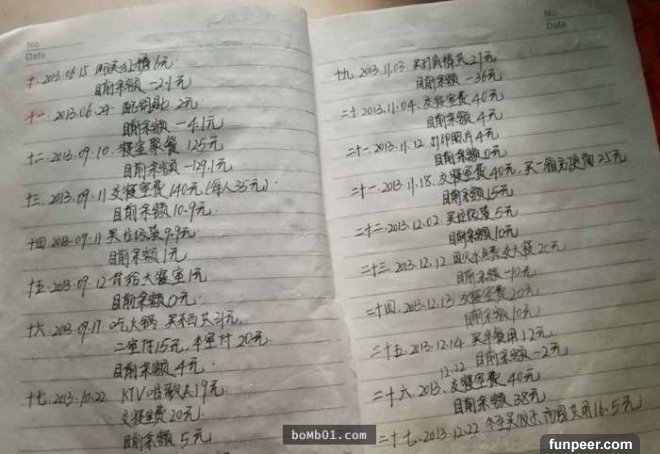 No.
Date
十. 2013.06.15 6元
目前余额 -2.1元
十一. 2013.06.24 配钥匙 2元
目前余额 -4.1元
十二. 2013.09.10. 寝室聚餐 125元
目前余额 -129.1元
十三. 2013.09.11 交寝室费 140元 (每人35元).
目前余额 10.9元.
十四. 2013.09.11 买垃圾袋 9.9元.
目前余额 1元.
十五. 2013.09.12 付给大寝室 1元
目前余额 0元.
十六. 2013.09.17. 吃火锅 买
二室付15元, 本室付 20元
目前余额 4元.
十七. 2013.10.22. KTV唱歌 19元.
交寝室费 20元.
目前余额 5元
No.
Date
十九. 2013.11.03. 买 21元
目前余额 -36元
二十. 2013.11.04. 交寝室费 40元
目前余额 4元
二十一. 2013.11.12. 打印照片 4元
目前余额 0元
二十一. 2013.11.18. 交寝室费 40元, 买一箱方便面 25元
目前余额 15元
二十二. 2013.12.02. 买垃圾袋 5元
目前余额 10元
二十三. 2013.12.12 水费 20元
目前余额 -10元
二十四. 2013.12.13. 交寝室费 20元
目前余额 10元
二十五. 2013.12.14. 买早餐用 12元
12.22 目前余额 -2元
二十六. 2013. 交寝室费 40元
目前余额 38元
二十七. 2013.12.22 冬至买饺子 共用 16.5元
boMb01.com
funpeer.com